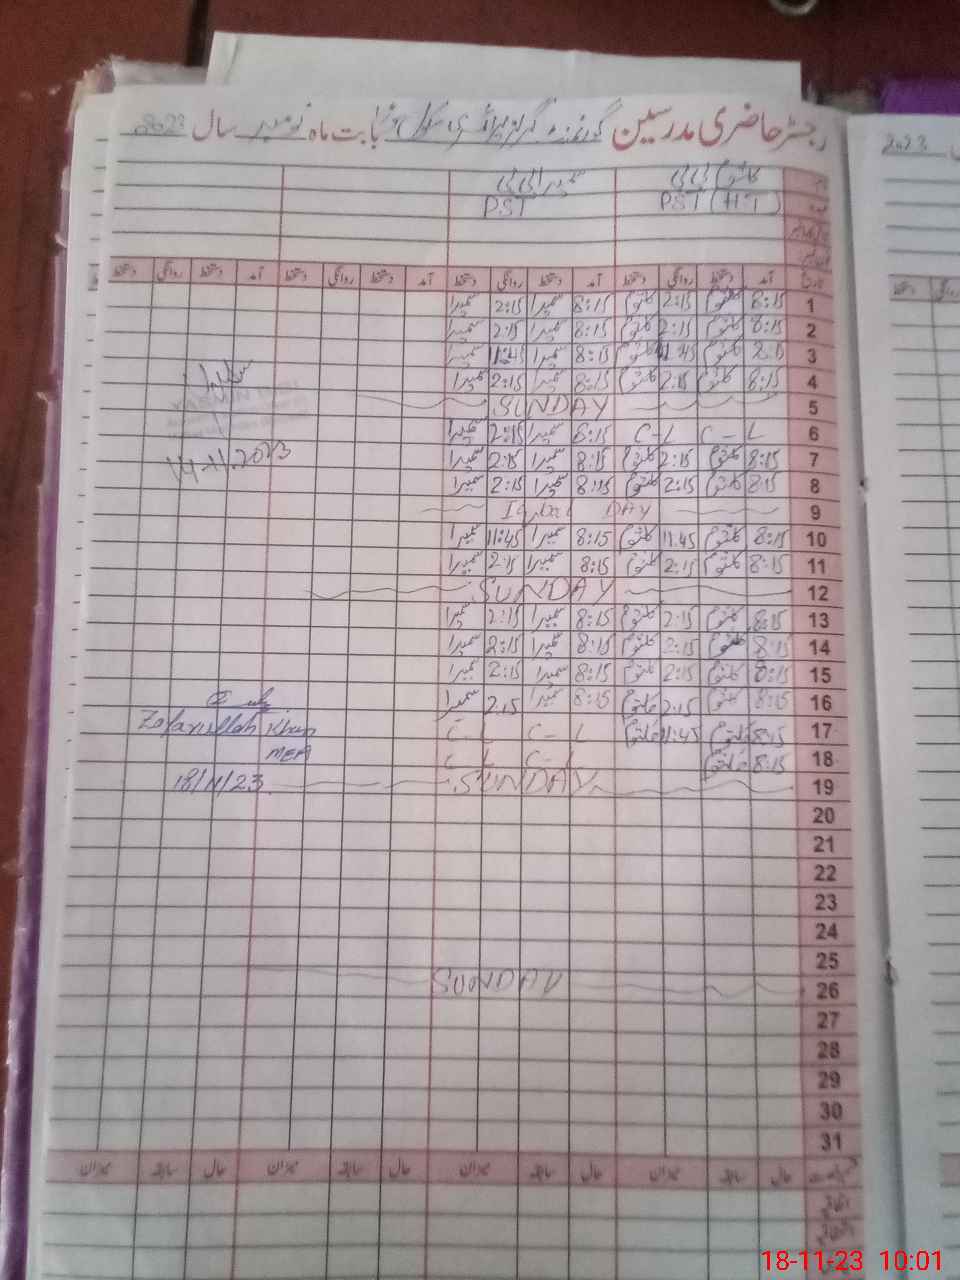 رجسٹر حاضری مدرسین گورنمنٹ گرلز پرائمری سکول بابت ماہ نومبر سال 2023
کلثوم بی بی سمیرا بی بی
PST (HT) PST
تاریخ آمد دستخط روانگی دستخط آمد دستخط روانگی دستخط آمد دستخط روانگی دستخط آمد دستخط روانگی دستخط
1 8:15 کلثوم 2:15 کلثوم 8:15 سمیرا 2:15 سمیرا
2 8:15 کلثوم 2:15 کلثوم 8:15 سمیرا 2:15 سمیرا
3 8:15 کلثوم 11:45 کلثوم 8:15 سمیرا 11:45 سمیرا
4 8:15 کلثوم 2:15 کلثوم 8:15 سمیرا 2:15 سمیرا
5 SUNDAY
6 C-L C-L 8:15 سمیرا 2:15 سمیرا
7 8:15 کلثوم 2:15 کلثوم 8:15 سمیرا 2:15 سمیرا
14-11-2023
8 8:15 کلثوم 2:15 کلثوم 8:15 سمیرا 2:15 سمیرا
9 Iqbal DAY
10 8:15 کلثوم 11:45 کلثوم 8:15 سمیرا 11:45 سمیرا
11 8:15 کلثوم 2:15 کلثوم 8:15 سمیرا 2:15 سمیرا
12 SUNDAY
13 8:15 کلثوم 2:15 کلثوم 8:15 سمیرا 2:15 سمیرا
14 8:15 کلثوم 2:15 کلثوم 8:15 سمیرا 2:15 سمیرا
15 8:15 کلثوم 2:15 کلثوم 8:15 سمیرا 2:15 سمیرا
16 8:15 کلثوم 2:15 کلثوم 8:15 سمیرا 2:15 سمیرا
17 8:15 کلثوم 11:45 کلثوم C-L C-L
Zafarullah Khan
MEA
18 8:15 کلثوم C-L C-L
18/11/23
19 SUNDAY
20
21
22
23
24
25
26 SUNDAY
27
28
29
30
31
حال سابقہ میزان حال سابقہ میزان حال سابقہ میزان حال سابقہ میزان
2023
18-11-23 10:01